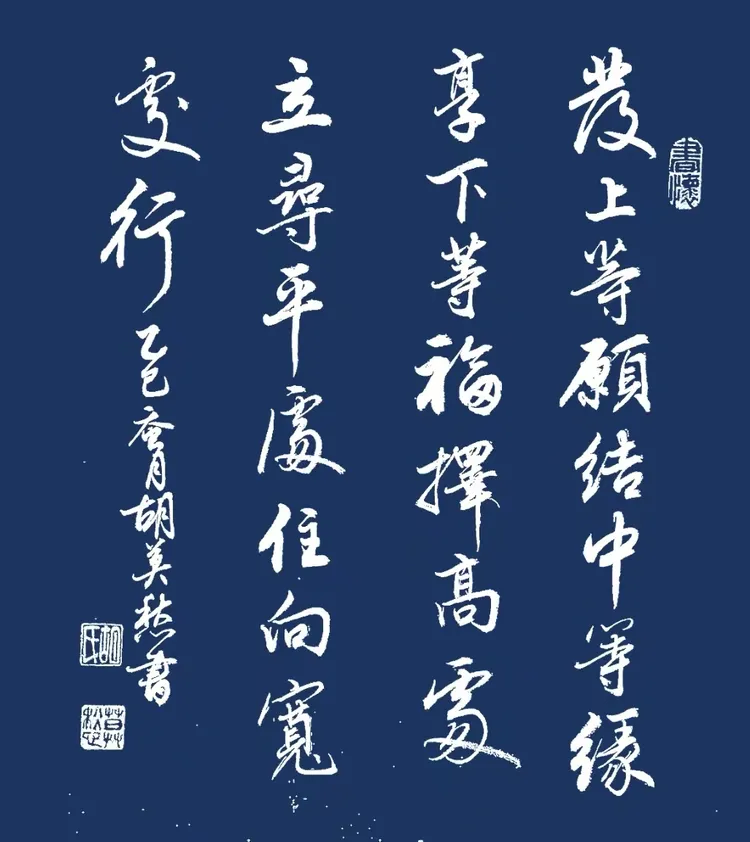 書懷
發上等願結中等緣
享下等福擇高處
立尋平處住向寬
處行
乙巳月胡書
胡氏